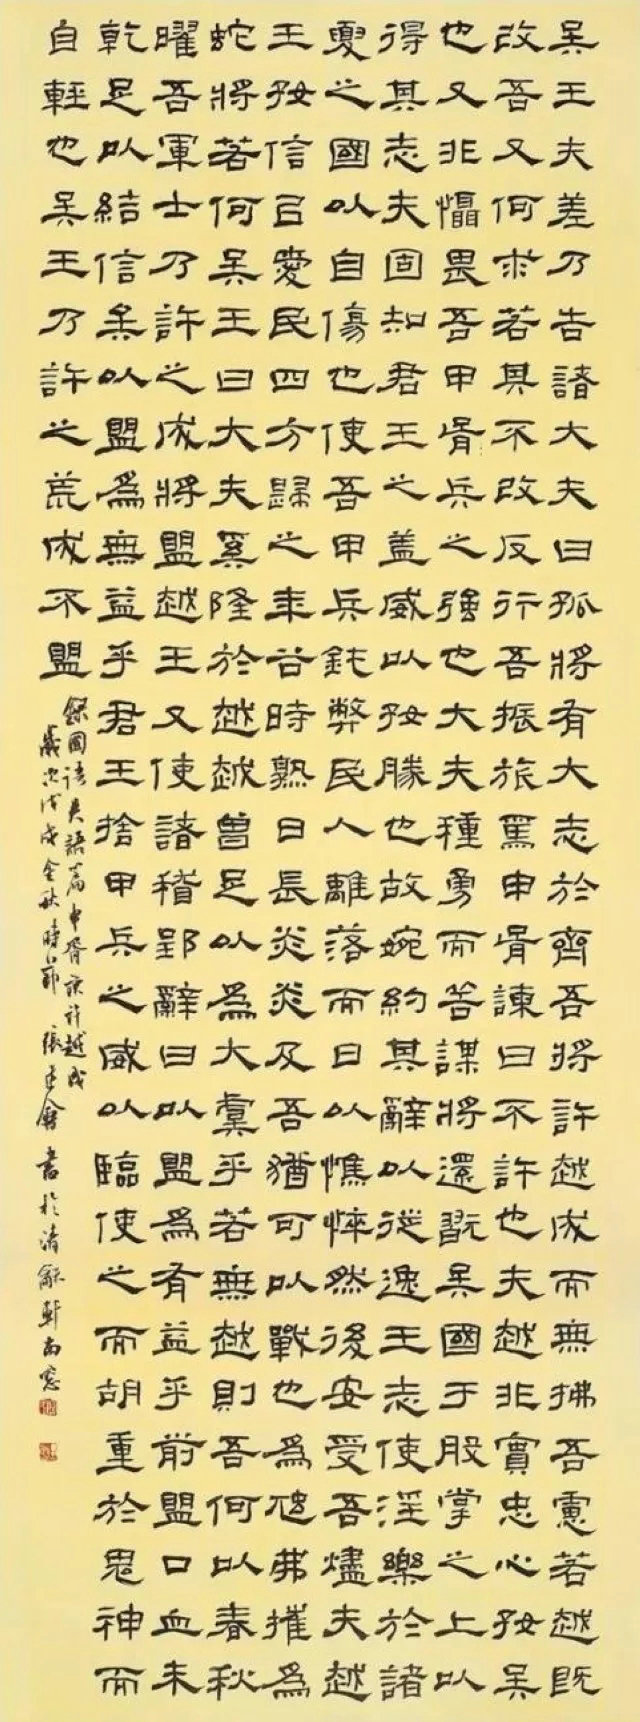 吴王夫差乃告諸大夫曰孤將有大志於齊吾將許越成而無拂吾慮若越既
改吾又何求若其不改反行吾振旅焉申胥諫曰不許也夫越非實忠心好吴
也又非懾畏吾甲胥兵之強也大夫種勇而善謀將還翫吴國于股掌之上以
得其志夫固知君王之蓋威以好勝也故婉約其辭以從逸王志使淫樂於諸
夏之國以自傷也使吾甲兵鈍弊民人離落而日以憔悴然後安受吾燼夫越
王好信㠯愛民四方歸之年谷時熟日長炎炎及吾猶可以戰也為虺弗摧為
蛇將若何吴王曰大夫奚隆於越越曾足以為大虞乎若無越則吾何以春秋
曜吾軍士乃許之成將盟越王又使諸稽郢辭曰以盟為有益乎前盟口血未
乾足以結信矣以盟為無益乎君王捨甲兵之威以臨使之而胡重於鬼神而
自輕也吴王乃許之荒成不盟
録國語吴語篇申胥諫許越成
歲次戊戌金秋時節張建會書於清龢軒南窗